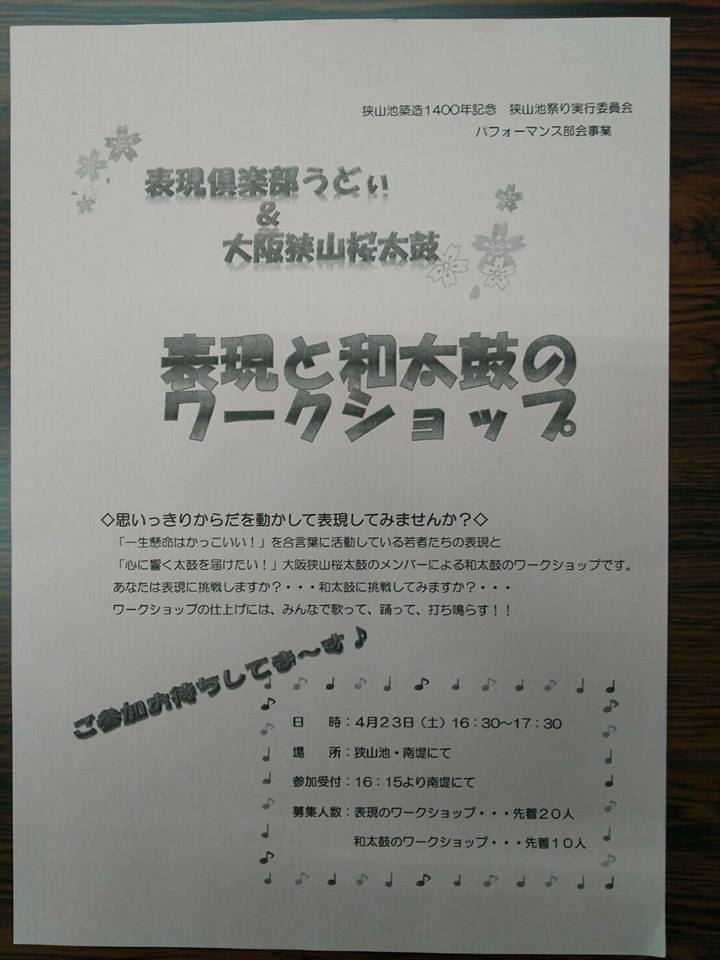 狭山池築造1400年記念　狭山池祭り実行委員会
パフォーマンス部会事業
表現倶楽部うどぃ
&
大阪狭山桜太鼓
表現と和太鼓の
ワークショップ
◇思いっきりからだを動かして表現してみませんか？◇
「一生懸命はかっこいい！」を合言葉に活動している若者たちの表現と
「心に響く太鼓を届けたい！」大阪狭山桜太鼓のメンバーによる和太鼓のワークショップです。
あなたは表現に挑戦しますか？・・・和太鼓に挑戦してみますか？・・・
ワークショップの仕上げには、みんなで歌って、踊って、打ち鳴らす！！
ご参加お待ちしてま～す♪
日　　時：４月２３日（土）１６：３０～１７：３０
場　　所：狭山池・南堤にて
参加受付：１６：１５より南堤にて
募集人数：表現のワークショップ・・・先着２０人
和太鼓のワークショップ・・・先着１０人